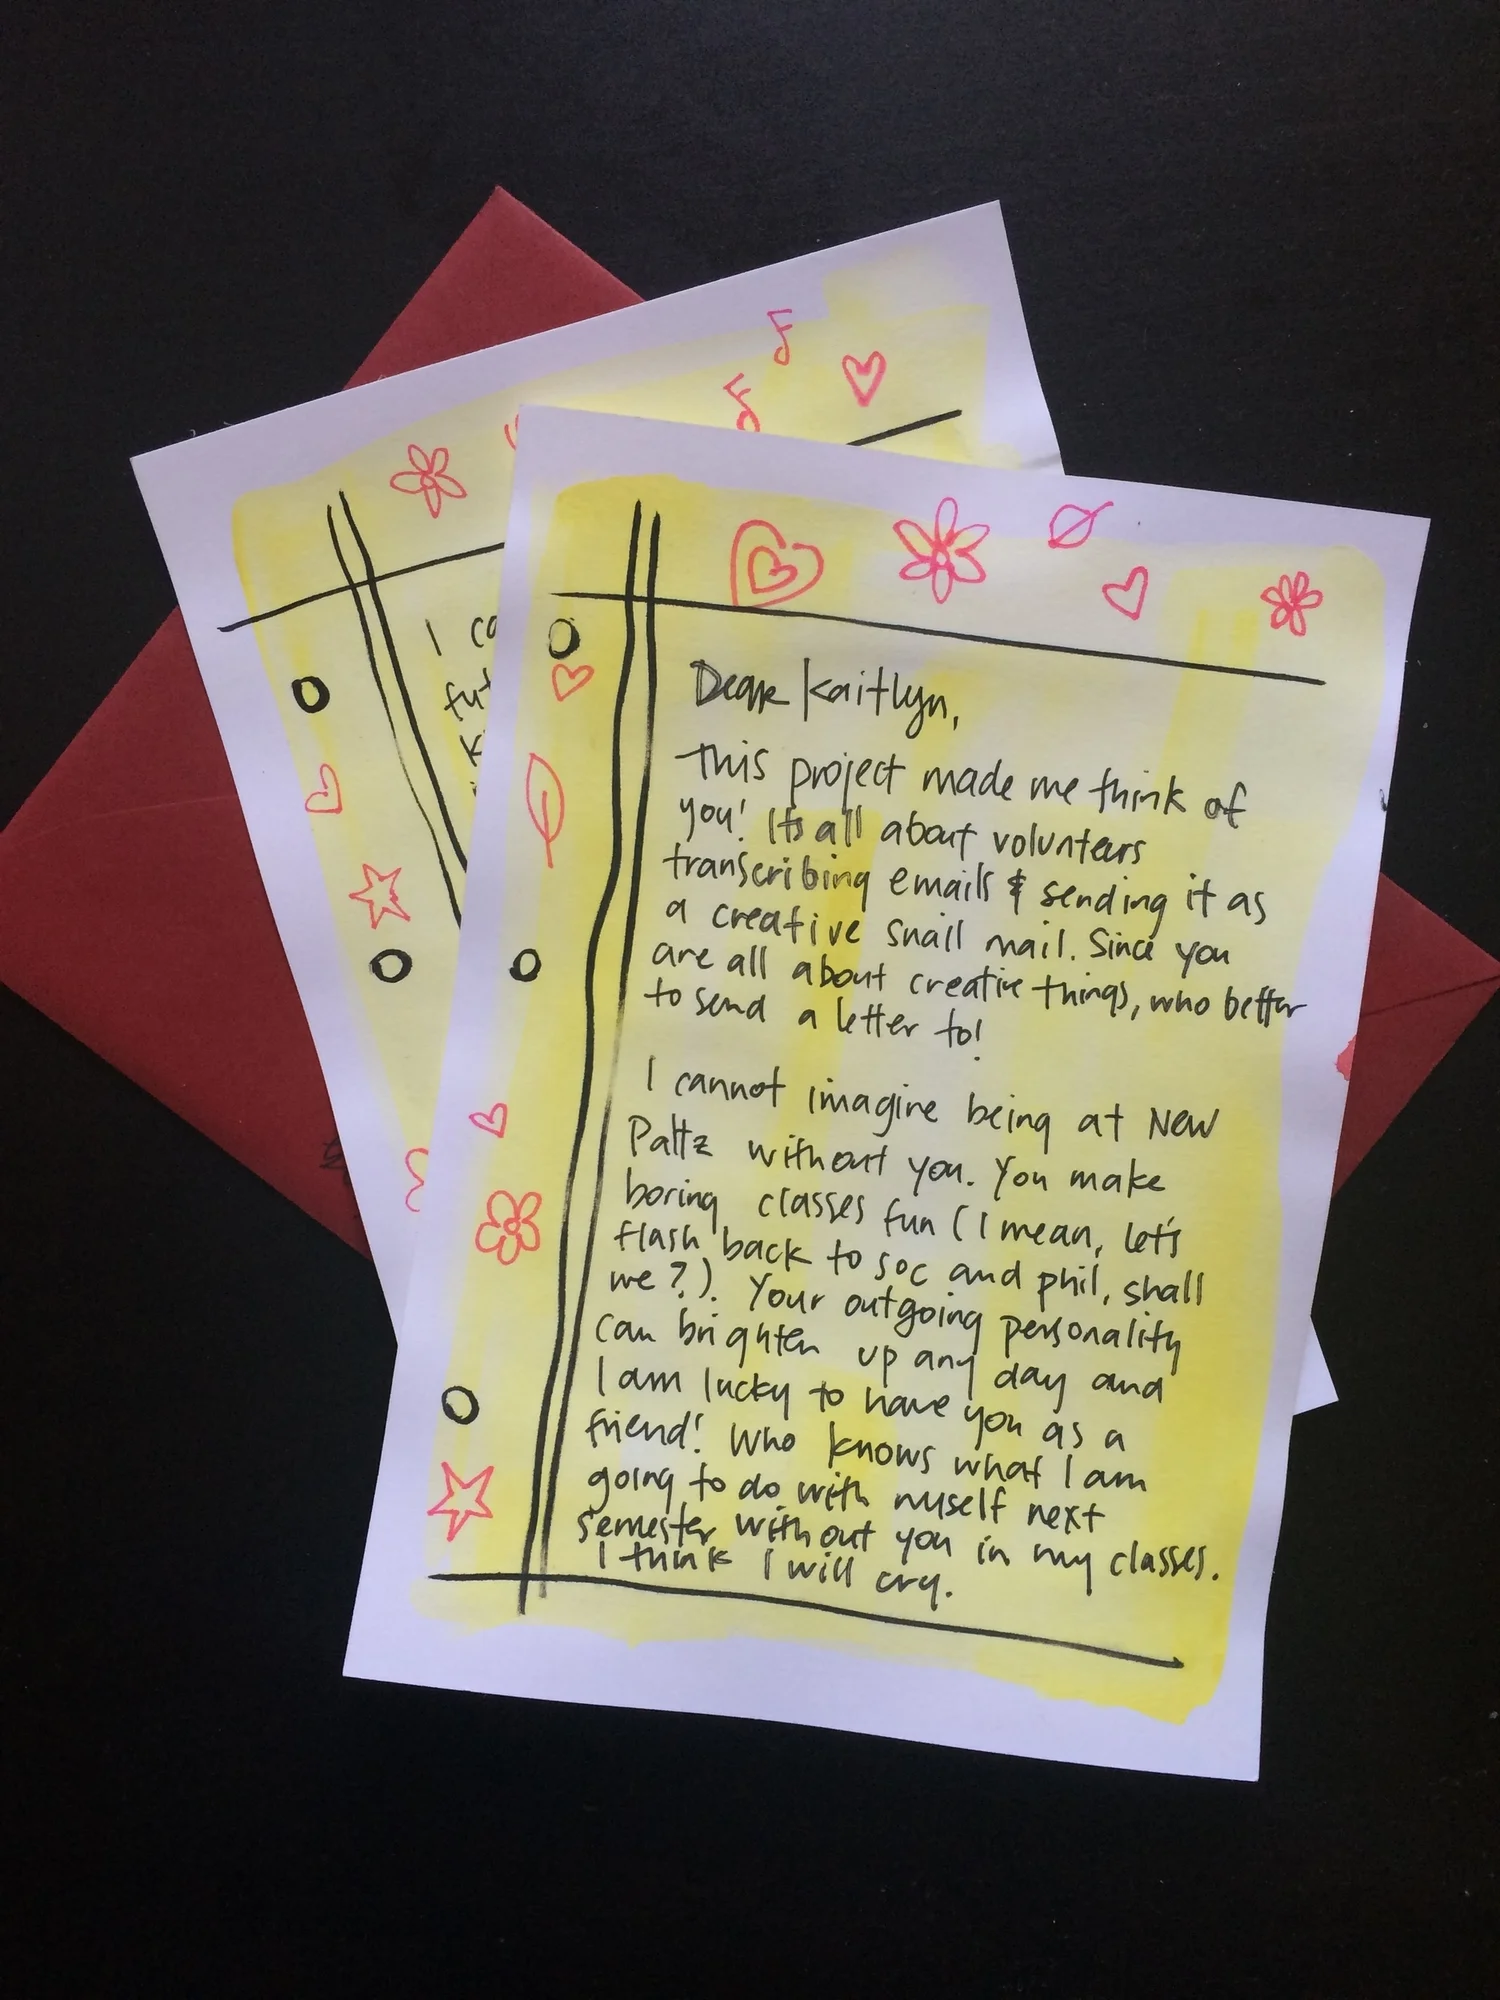 I ca
fut
K
Dear Kaitlyn,
This project made me think of
you! Its all about volunteers
transcribing emails & sending it as
a creative snail mail. Since you
are all about creative things, who better
to send a letter to!
I cannot imagine being at New
Paltz without you. You make
boring classes fun (I mean, let's
flash back to soc and phil, shall
we?). Your outgoing personality
can brighten up any day and
I am lucky to have you as a
friend! Who knows what I am
going to do with myself next
semester without you in my classes.
I think I will cry.